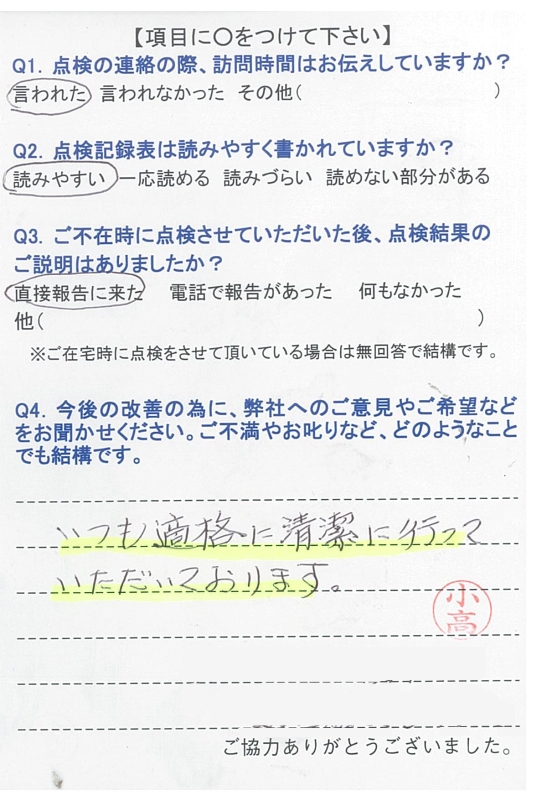 【項目に〇をつけて下さい】
Q1. 点検の連絡の際、訪問時間はお伝えしていますか？
言われた 言われなかった その他( )
Q2. 点検記録表は読みやすく書かれていますか？
読みやすい 一応読める 読みづらい 読めない部分がある
Q3. ご不在時に点検させていただいた後、点検結果の
ご説明はありましたか？
直接報告に来た 電話で報告があった 何もなかった
他( )
※ご在宅時に点検をさせて頂いている場合は無回答で結構です。
Q4. 今後の改善の為に、弊社へのご意見やご希望など
をお聞かせください。ご不満やお叱りなど、どのようなこと
でも結構です。
いつも適格に清潔に行って
いただいております。
小高
ご協力ありがとうございました。